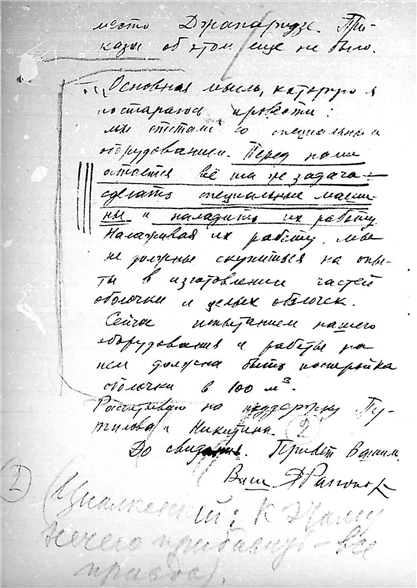 место Джапаридзе. При-
казы об этом еще не было.
„Основная мысль, которую я
постараюсь провести:
мы отстали со специальным
оборудованием. Перед нами
остается всё та же задача —
сделать специальные маши-
ны и наладить их работу.
Налаживая их работу, мы
не должны скупиться на опы-
ты в изготовлении частей
оболочки и целых оболочек.
Сейчас испытанием нашего
оборудования и работы на
нем должна быть постройка
оболочки в 100 м³.
Рассчитываю на поддержку Пу-
тилова и Никитина. 2)
До свидания. Привет Вашим.
Ваш Я Рапопорт
2) (Циолковский: К этому
нечего прибавить — все
правда).